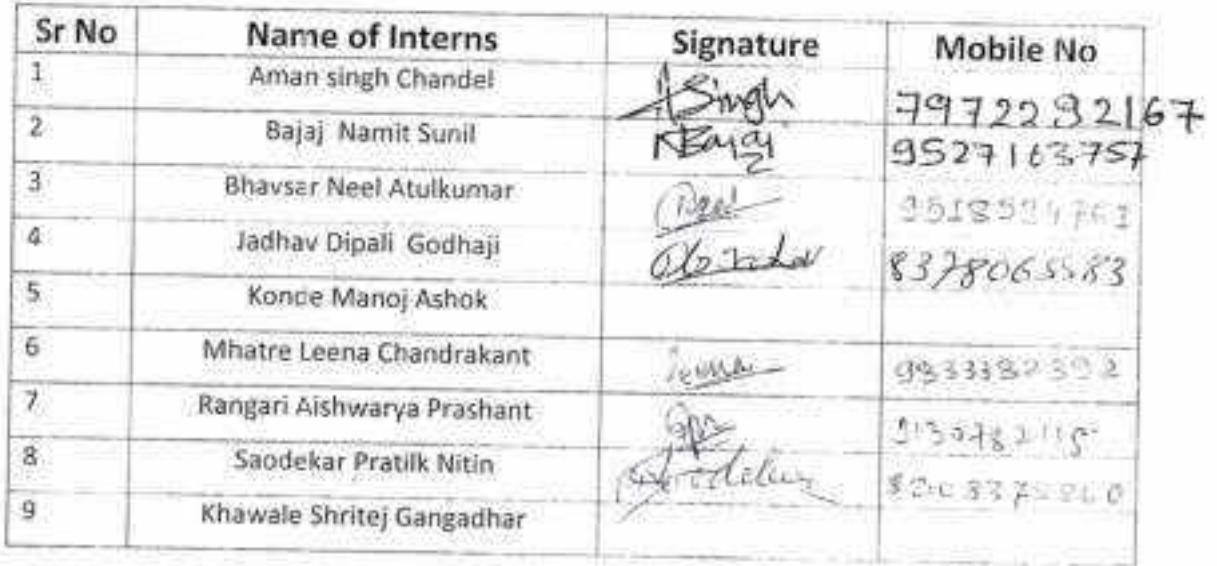 Sr No Name of Interns Signature Mobile No
1 Aman singh Chandel ASingh 7972292167
2 Bajaj Namit Sunil NBajaj 9527163757
3 Bhavsar Neel Atulkumar
4 Jadhav Dipali Godhaji 8378065583
5 Konde Manoj Ashok
6 Mhatre Leena Chandrakant Leena
7 Rangari Aishwarya Prashant
8 Saodekar Pratilk Nitin
9 Khawale Shritej Gangadhar